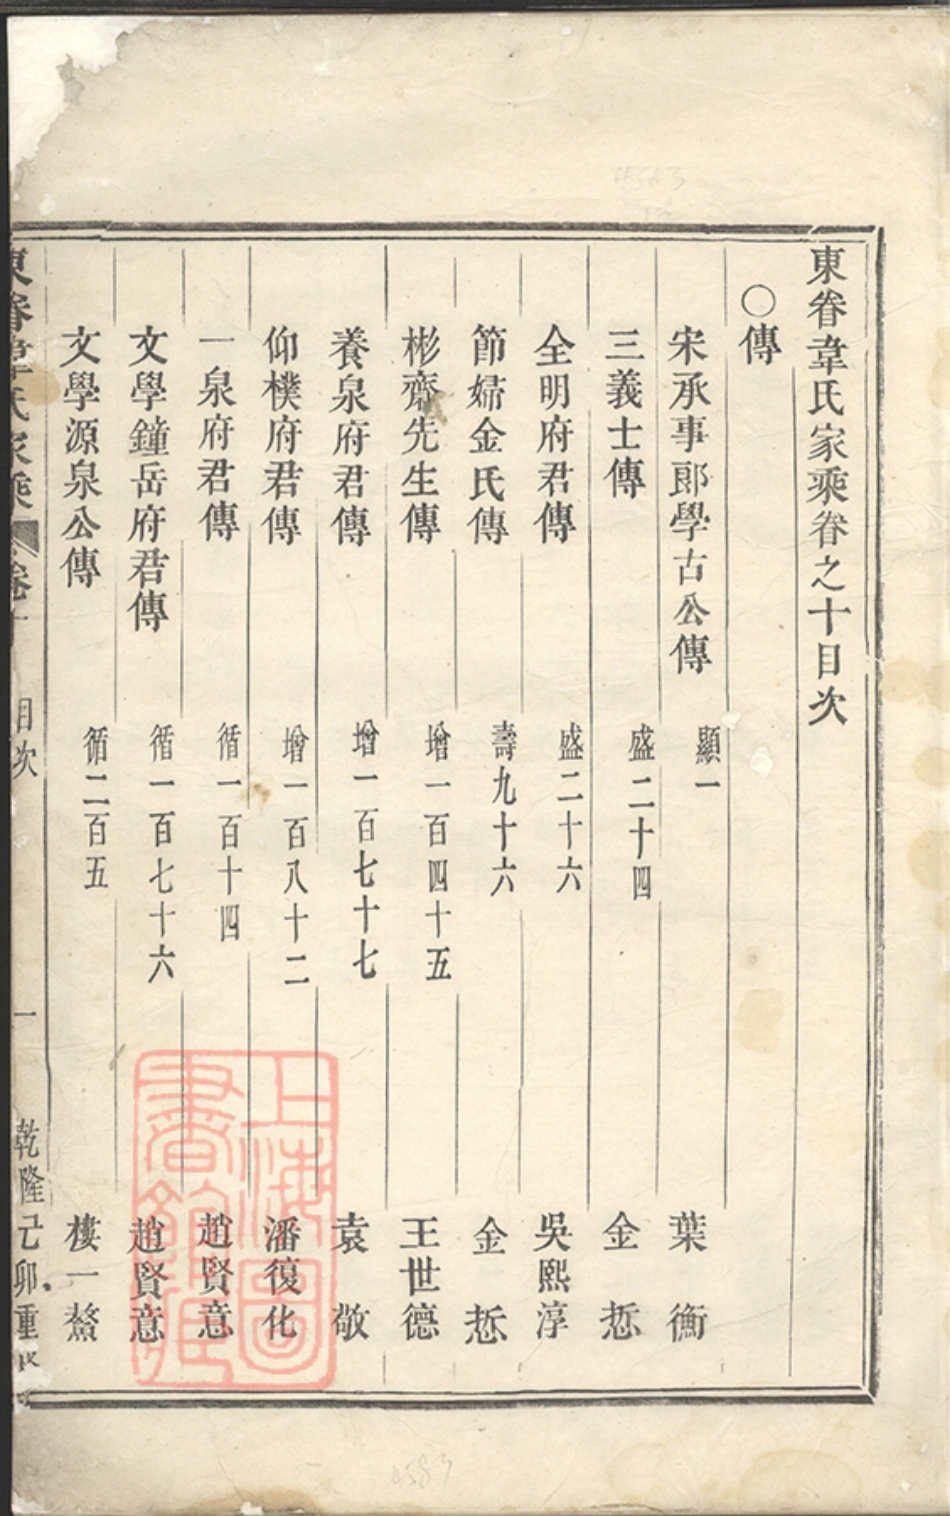 東眷韋氏家乘卷之十目次
○傳
宋承事郎學古公傳 顯一 葉衡
三義士傳 盛二十四 金悊
全明府君傳 盛二十六 吳熙淳
節婦金氏傳 壽九十六 金悊
彬齋先生傳 增一百四十五 王世德
養泉府君傳 增一百七十七 袁敬
仰樸府君傳 增一百八十二 潘復化
一泉府君傳 循一百十四 趙賢意
文學鐘岳府君傳 循一百七十六 趙賢意
文學源泉公傳 循二百五 樓一蓥
東眷韋氏家乘 卷十 目次 一 乾隆己卯重修
上海圖書館藏
4583